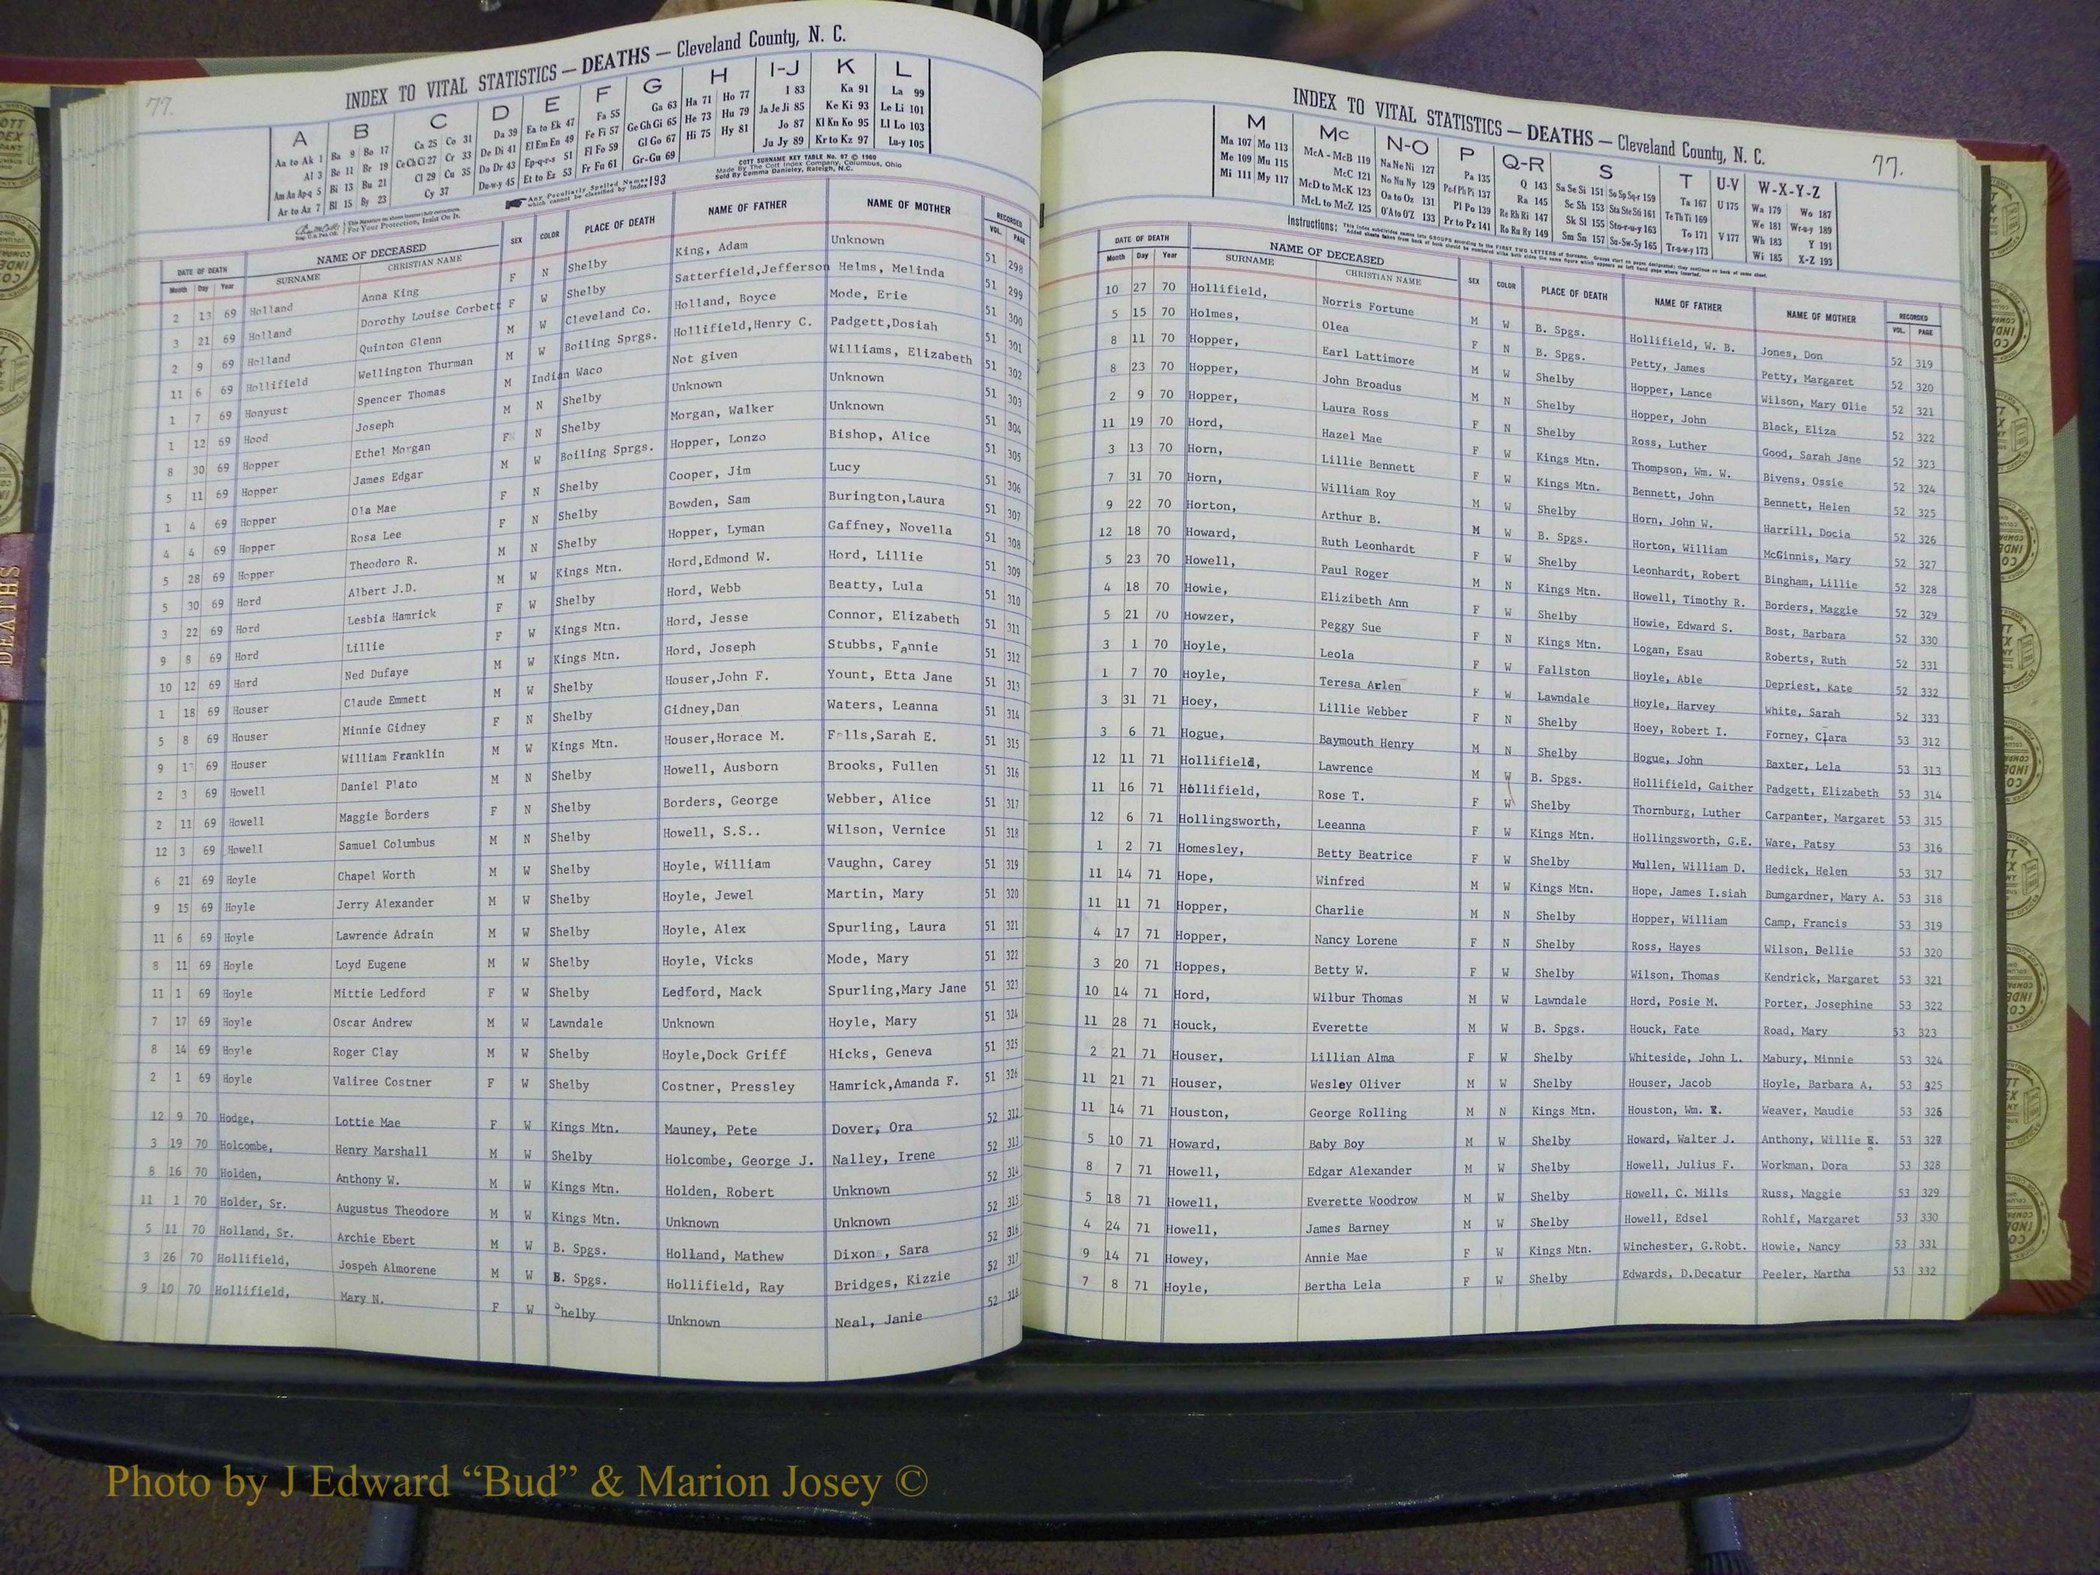 77.
INDEX TO VITAL STATISTICS — DEATHS — Cleveland County, N. C.
A B C D E F G H I-J K L
Aa to Ak 1 Ba 9 Bo 17 Ca 25 Co 31 Da 39 Ea to Ek 47 Fa 55 Ga 63 Ha 71 Ho 77 I 83 Ka 91 La 99
Al 3 Be 11 Br 19 Ce Ch Ci 27 Cr 33 De Di 41 El Em En 49 Fe Fi 57 Ge Gh Gi 65 He 73 Hu 79 Ja Je Ji 85 Ke Ki 93 Le Li 101
Am An Ap-q 5 Bi 13 Bu 21 Cl 29 Cu 35 Do Dr 43 Ep-q-r-s 51 Fl Fo 59 Gl Go 67 Hi 75 Hy 81 Jo 87 Kl Kn Ko 95 Ll Lo 103
Ar to Az 7 Bl 15 By 23 Cy 37 Du-w-y 45 Et to Ez 53 Fr Fu 61 Gr-Gu 69 Ju Jy 89 Kr to Kz 97 Lu-y 105
For Your Protection, Insist On It.
Any Peculiarly Spelled Names which cannot be classified by Index 193
COTT SURNAME KEY TABLE No. 97 © 1960
Made By The Cott Index Company, Columbus, Ohio
Sold By Comma Danieley, Raleigh, N.C.
DATE OF DEATH NAME OF DECEASED SEX COLOR PLACE OF DEATH NAME OF FATHER NAME OF MOTHER RECORDED
Month Day Year SURNAME CHRISTIAN NAME VOL. PAGE
2 13 69 Holland Anna King F N Shelby King, Adam Unknown 51 298
3 21 69 Holland Dorothy Louise Corbett F W Shelby Satterfield,Jefferson Helms, Melinda 51 299
2 9 69 Holland Quinton Glenn M W Cleveland Co. Holland, Boyce Mode, Erie 51 300
11 6 69 Hollifield Wellington Thurman M W Boiling Sprgs. Hollifield,Henry C. Padgett,Dosiah 51 301
1 7 69 Honyust Spencer Thomas M Indian Waco Not given Williams, Elizabeth 51 302
1 12 69 Hood Joseph M N Shelby Unknown Unknown 51 303
8 30 69 Hopper Ethel Morgan F N Shelby Morgan, Walker Unknown 51 304
5 11 69 Hopper James Edgar M W Boiling Sprgs. Hopper, Lonzo Bishop, Alice 51 305
1 4 69 Hopper Ola Mae F N Shelby Cooper, Jim Lucy 51 306
4 4 69 Hopper Rosa Lee F N Shelby Bowden, Sam Burington,Laura 51 307
5 28 69 Hopper Theodoro R. M N Shelby Hopper, Lyman Gaffney, Novella 51 308
5 30 69 Hord Albert J.D. M W Kings Mtn. Hord,Edmond W. Hord, Lillie 51 309
3 22 69 Hord Lesbia Hamrick F W Shelby Hord, Webb Beatty, Lula 51 310
9 8 69 Hord Lillie F W Kings Mtn. Hord, Jesse Connor, Elizabeth 51 311
10 12 69 Hord Ned Dufaye M W Kings Mtn. Hord, Joseph Stubbs, Fannie 51 312
1 18 69 Houser Claude Emmett M W Shelby Houser,John F. Yount, Etta Jane 51 313
5 8 69 Houser Minnie Gidney F N Shelby Gidney,Dan Waters, Leanna 51 314
9 69 Houser William Franklin M W Kings Mtn. Houser,Horace M. Falls,Sarah E. 51 315
2 3 69 Howell Daniel Plato M N Shelby Howell, Ausborn Brooks, Fullen 51 316
2 11 69 Howell Maggie Borders F N Shelby Borders, George Webber, Alice 51 317
12 3 69 Howell Samuel Columbus M N Shelby Howell, S.S.. Wilson, Vernice 51 318
6 21 69 Hoyle Chapel Worth M W Shelby Hoyle, William Vaughn, Carey 51 319
9 15 69 Hoyle Jerry Alexander M W Shelby Hoyle, Jewel Martin, Mary 51 320
11 6 69 Hoyle Lawrence Adrain M W Shelby Hoyle, Alex Spurling, Laura 51 321
8 11 69 Hoyle Loyd Eugene M W Shelby Hoyle, Vicks Mode, Mary 51 322
11 1 69 Hoyle Mittie Ledford F W Shelby Ledford, Mack Spurling,Mary Jane 51 323
7 17 69 Hoyle Oscar Andrew M W Lawndale Unknown Hoyle, Mary 51 324
8 14 69 Hoyle Roger Clay M W Shelby Hoyle,Dock Griff Hicks, Geneva 51 325
2 1 69 Hoyle Valiree Costner F W Shelby Costner, Pressley Hamrick,Amanda F. 51 326
12 9 70 Hodge, Lottie Mae F W Kings Mtn. Mauney, Pete Dover, Ora 52 312
3 19 70 Holcombe, Henry Marshall M W Shelby Holcombe, George J. Nalley, Irene 52 313
8 16 70 Holden, Anthony W. M W Kings Mtn. Holden, Robert Unknown 52 314
11 1 70 Holder, Sr. Augustus Theodore M W Kings Mtn. Unknown Unknown 52 315
5 11 70 Holland, Sr. Archie Ebert M W B. Spgs. Holland, Mathew Dixon , Sara 52 316
3 26 70 Hollifield, Jospeh Almorene M W B. Spgs. Hollifield, Ray Bridges, Kizzie 52 317
9 10 70 Hollifield, Mary N. F W Shelby Unknown Neal, Janie 52 318
77.
INDEX TO VITAL STATISTICS — DEATHS — Cleveland County, N. C.
M Mc N-O P Q-R S T U-V W-X-Y-Z
Ma 107 Mo 113 McA - McB 119 Na Ne Ni 127 Pa 135 Q 143 Sa Se Si 151 So Sp Sq-r 159 Ta 167 U 175 Wa 179 Wo 187
Me 109 Mu 115 McC 121 No Nu Ny 129 Pe-f Ph Pi 137 Ra 145 Sc Sh 153 Sta Ste Sti 161 Te Th Ti 169 We 181 Wr-u-y 189
Mi 111 My 117 McD to McK 123 Oa to Oz 131 Pl Po 139 Re Rh Ri 147 Sk Sl 155 Sto-r-u-y 163 To 171 V 177 Wh 183 Y 191
McL to McZ 125 O'A to O'Z 133 Pr to Pz 141 Ro Ru Ry 149 Sm Sn 157 Su-Sw-Sy 165 Tr-u-w-y 173 Wi 185 X-Z 193
Instructions: This index subdivides names into GROUPS according to the FIRST TWO LETTERS of Surname.
DATE OF DEATH NAME OF DECEASED SEX COLOR PLACE OF DEATH NAME OF FATHER NAME OF MOTHER RECORDED
Month Day Year SURNAME CHRISTIAN NAME VOL. PAGE
10 27 70 Hollifield, Norris Fortune M W B. Spgs. Hollifield, W. B. Jones, Don 52 319
5 15 70 Holmes, Olea F N B. Spgs. Petty, James Petty, Margaret 52 320
8 11 70 Hopper, Earl Lattimore M W Shelby Hopper, Lance Wilson, Mary Olie 52 321
8 23 70 Hopper, John Broadus M N Shelby Hopper, John Black, Eliza 52 322
2 9 70 Hopper, Laura Ross F N Shelby Ross, Luther Good, Sarah Jane 52 323
11 19 70 Hord, Hazel Mae F W Kings Mtn. Thompson, Wm. W. Bivens, Ossie 52 324
3 13 70 Horn, Lillie Bennett F W Kings Mtn. Bennett, John Bennett, Helen 52 325
7 31 70 Horn, William Roy M W Shelby Horn, John W. Harrill, Docia 52 326
9 22 70 Horton, Arthur B. M W B. Spgs. Horton, William McGinnis, Mary 52 327
12 18 70 Howard, Ruth Leonhardt F W Shelby Leonhardt, Robert Bingham, Lillie 52 328
5 23 70 Howell, Paul Roger M N Kings Mtn. Howell, Timothy R. Borders, Maggie 52 329
4 18 70 Howie, Elizibeth Ann F W Shelby Howie, Edward S. Bost, Barbara 52 330
5 21 70 Howzer, Peggy Sue F N Kings Mtn. Logan, Esau Roberts, Ruth 52 331
3 1 70 Hoyle, Leola F W Fallston Hoyle, Able Depriest, Kate 52 332
1 7 70 Hoyle, Teresa Arlen F W Lawndale Hoyle, Harvey White, Sarah 52 333
3 31 71 Hoey, Lillie Webber F N Shelby Hoey, Robert I. Forney, Clara 53 312
3 6 71 Hogue, Baymouth Henry M N Shelby Hogue, John Baxter, Lela 53 313
12 11 71 Hollifield, Lawrence M W B. Spgs. Hollifield, Gaither Padgett, Elizabeth 53 314
11 16 71 Hollifield, Rose T. F W Shelby Thornburg, Luther Carpanter, Margaret 53 315
12 6 71 Hollingsworth, Leeanna F W Kings Mtn. Hollingsworth, G.E. Ware, Patsy 53 316
1 2 71 Homesley, Betty Beatrice F W Shelby Mullen, William D. Hedick, Helen 53 317
11 14 71 Hope, Winfred M W Kings Mtn. Hope, James I.siah Bumgardner, Mary A. 53 318
11 11 71 Hopper, Charlie M N Shelby Hopper, William Camp, Francis 53 319
4 17 71 Hopper, Nancy Lorene F N Shelby Ross, Hayes Wilson, Dellie 53 320
3 20 71 Hoppes, Betty W. F W Shelby Wilson, Thomas Kendrick, Margaret 53 321
10 14 71 Hord, Wilbur Thomas M W Lawndale Hord, Posie M. Porter, Josephine 53 322
11 28 71 Houck, Everette M W B. Spgs. Houck, Fate Road, Mary 53 323
2 21 71 Houser, Lillian Alma F W Shelby Whiteside, John L. Mabury, Minnie 53 324
11 21 71 Houser, Wesley Oliver M W Shelby Houser, Jacob Hoyle, Barbara A, 53 325
11 14 71 Houston, George Rolling M N Kings Mtn. Houston, Wm. Weaver, Maudie 53 326
5 10 71 Howard, Baby Boy M W Shelby Howard, Walter J. Anthony, Willie E. 53 327
8 7 71 Howell, Edgar Alexander M W Shelby Howell, Julius F. Workman, Dora 53 328
5 18 71 Howell, Everette Woodrow M W Shelby Howell, C. Mills Russ, Maggie 53 329
4 24 71 Howell, James Barney M W Shelby Howell, Edsel Rohlf, Margaret 53 330
9 14 71 Howey, Annie Mae F W Kings Mtn. Winchester, G.Robt. Howie, Nancy 53 331
7 8 71 Hoyle, Bertha Lela F W Shelby Edwards, D.Decatur Peeler, Martha 53 332
DEATHS
Photo by J Edward “Bud” & Marion Josey ©